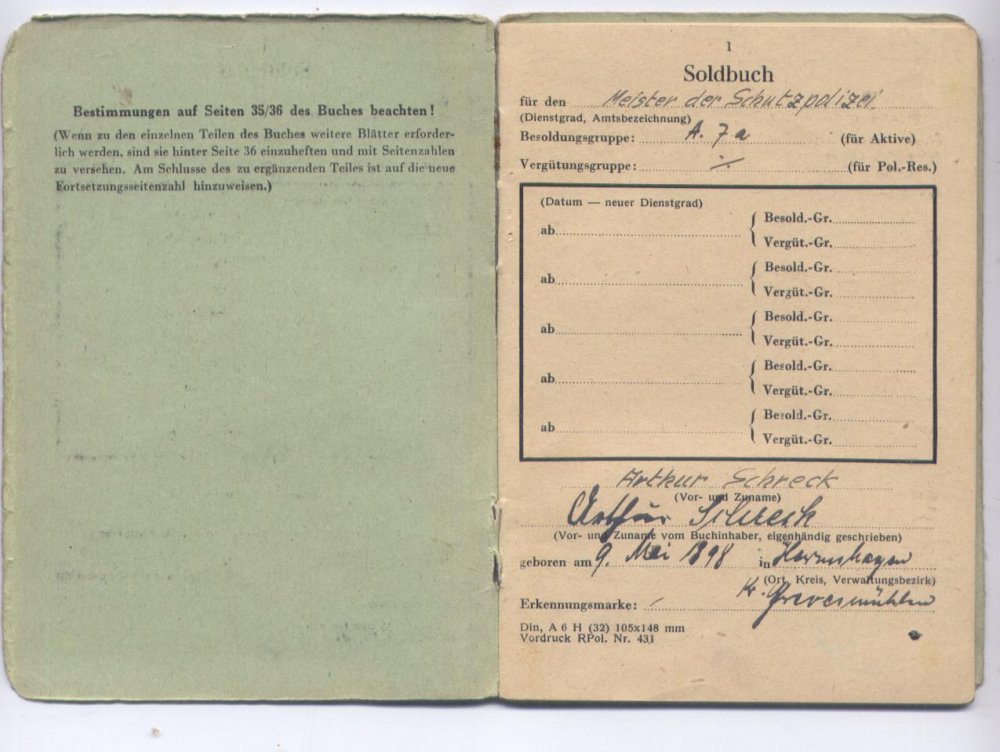 Bestimmungen auf Seiten 35/36 des Buches beachten!
(Wenn zu den einzelnen Teilen des Buches weitere Blätter erforder-
lich werden, sind sie hinter Seite 36 einzuheften und mit Seitenzahlen
zu versehen. Am Schlusse des zu ergänzenden Teiles ist auf die neue
Fortsetzungsseitenzahl hinzuweisen.)
1
Soldbuch
für den Meister der Schutzpolizei
(Dienstgrad, Amtsbezeichnung)
Besoldungsgruppe: A. 7a (für Aktive)
Vergütungsgruppe: (für Pol.-Res.)
(Datum — neuer Dienstgrad)
Besold.-Gr.
ab
Vergüt.-Gr.
Besold.-Gr.
ab
Vergüt.-Gr.
Besold.-Gr.
ab
Vergüt.-Gr.
Besold.-Gr.
ab
Vergüt.-Gr.
Besold.-Gr.
ab
Vergüt.-Gr.
Arthur Schreck
(Vor- und Zuname)
Arthur Schreck
(Vor- und Zuname vom Buchinhaber, eigenhändig geschrieben)
geboren am 9. Mai 1898 in
(Ort, Kreis, Verwaltungsbezirk)
Kr. Grevesmühlen
Erkennungsmarke:
Din, A 6 H (32) 105x148 mm
Vordruck RPol. Nr. 431